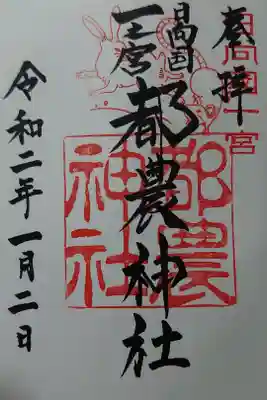 奉拝
日向国一宮
日向国
一之宮
都農神社
都農
神社
令和二年一月二日